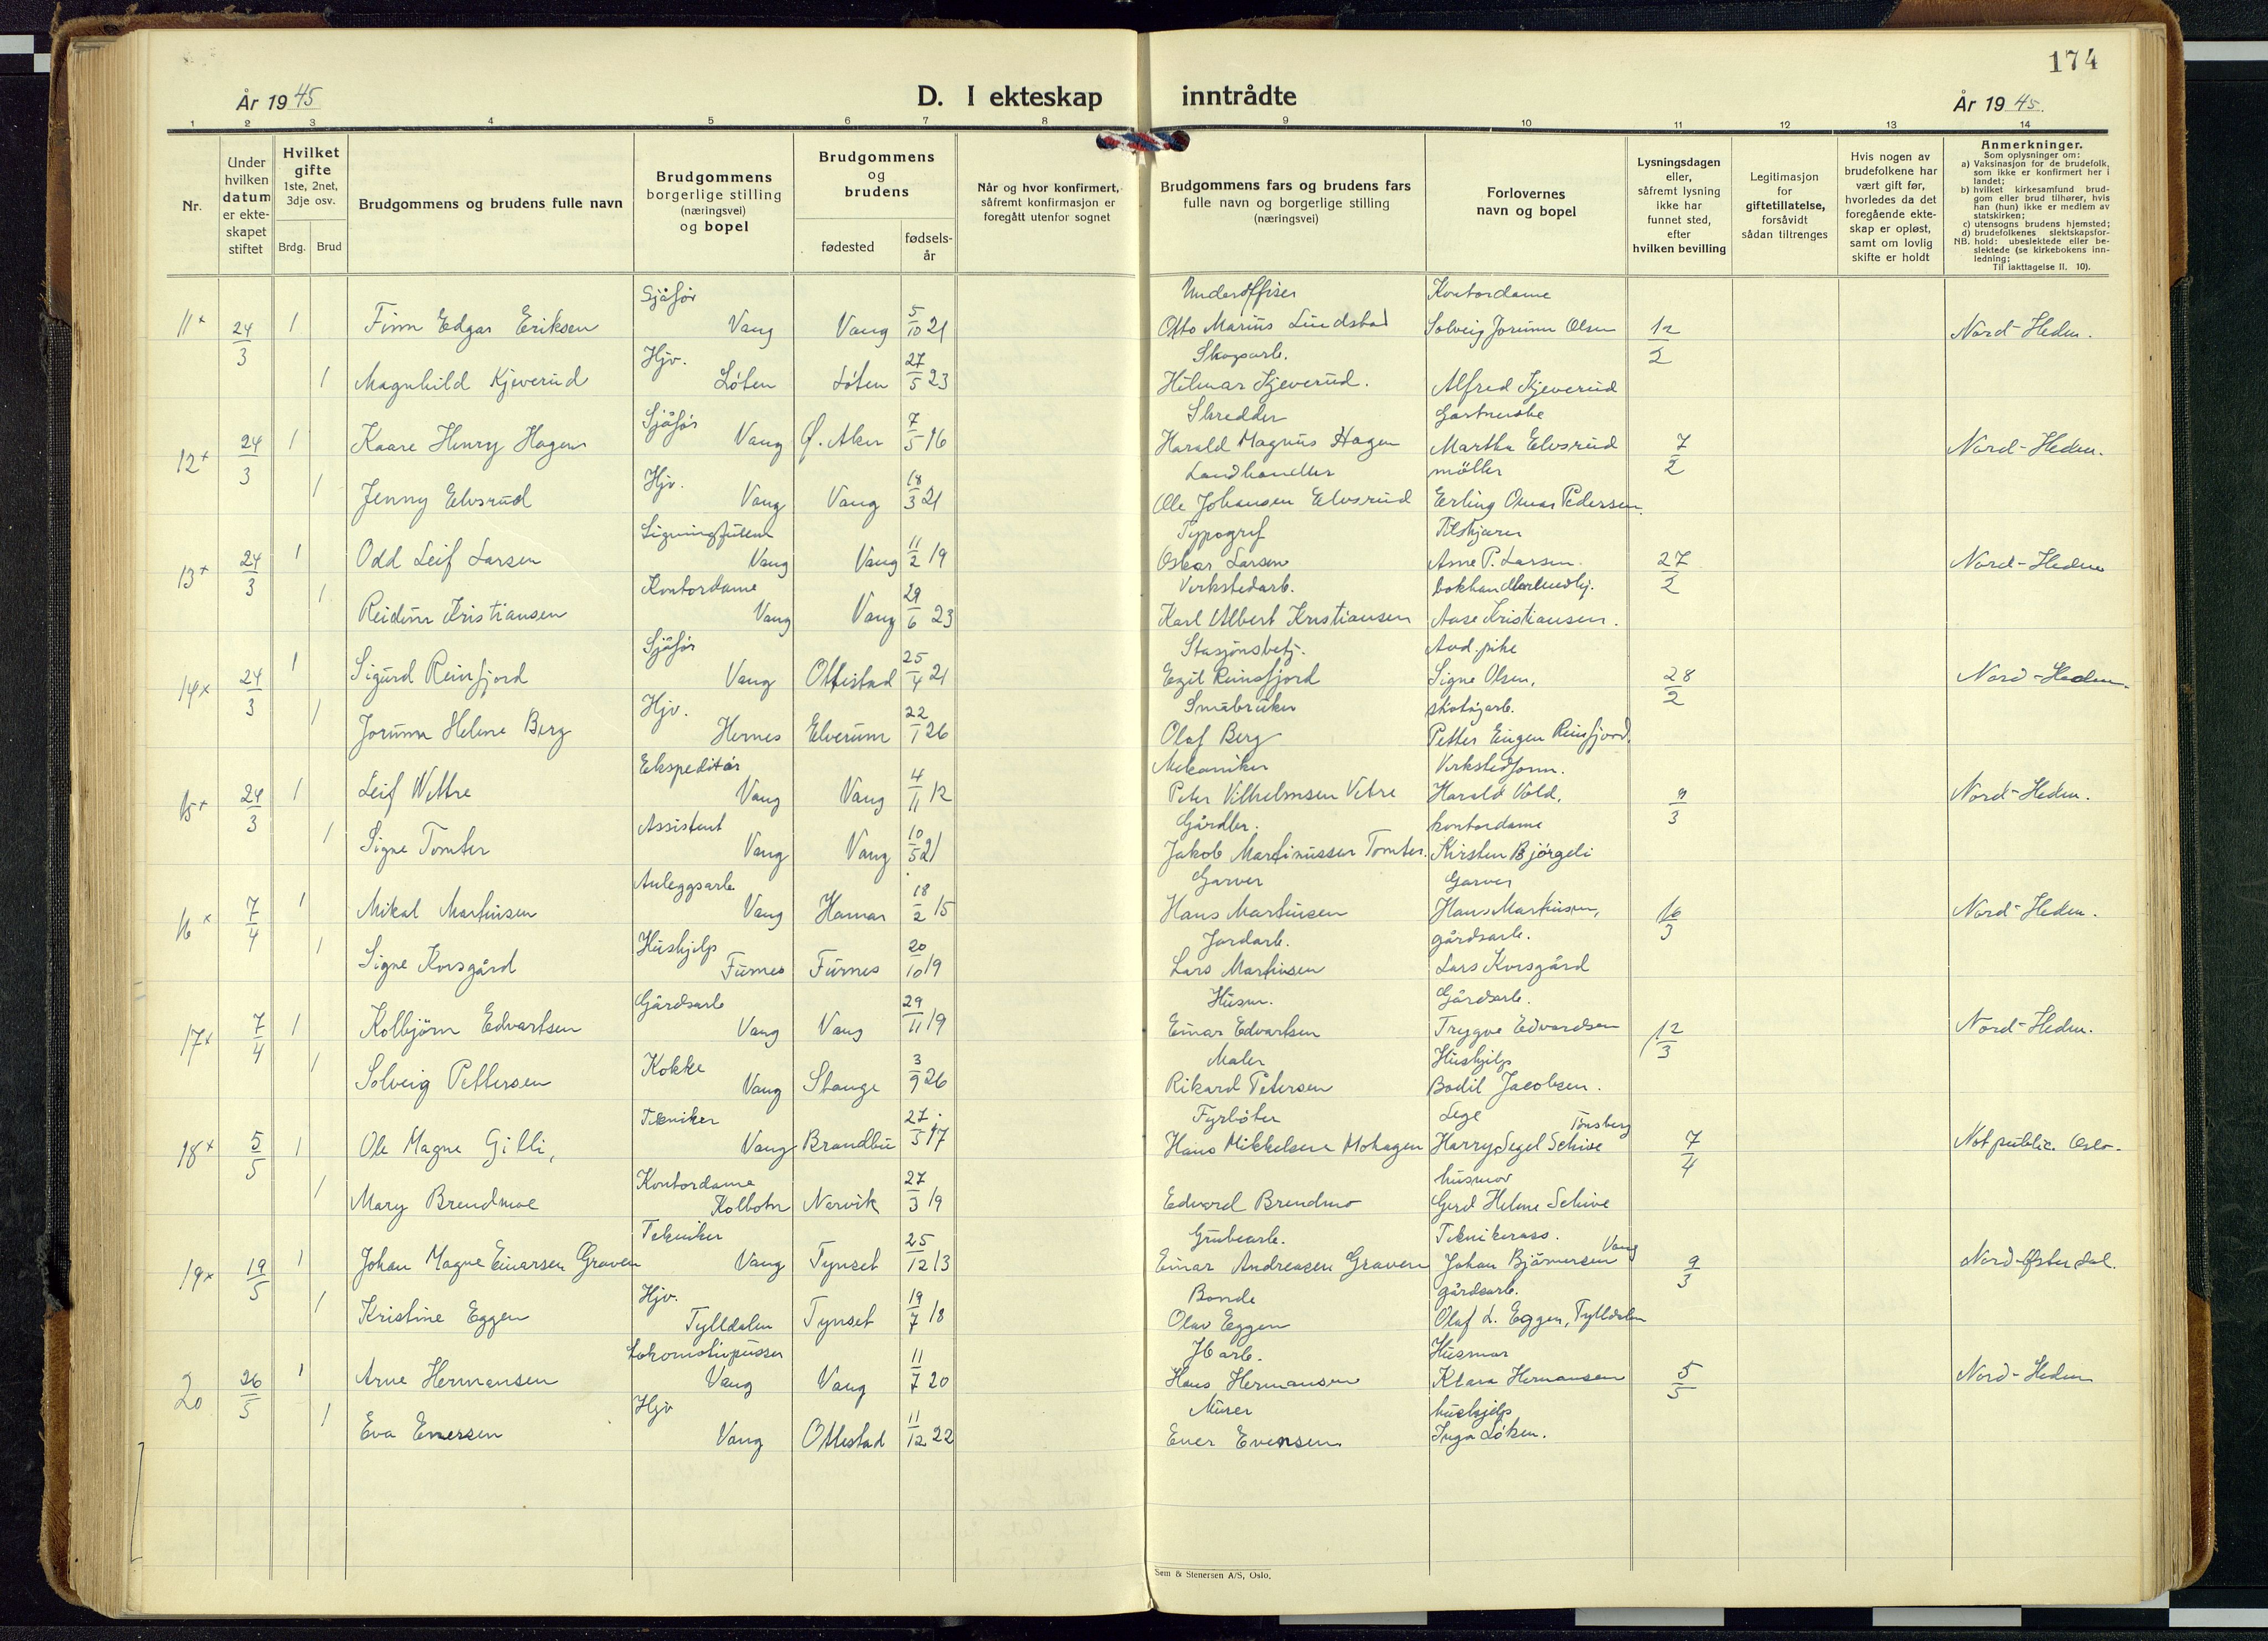 174
År 1945
D. I ekteskap inntrådte
År 1945.
1 2 3 4 5 6 7 8 9 10 11 12 13 14
Nr.
Under hvilken datum er ekteskapet stiftet
Hvilket gifte 1ste, 2net, 3dje osv.
Brdg. Brud
Brudgommens og brudens fulle navn
Brudgommens borgerlige stilling (næringsvei) og bopel
Brudgommens og brudens
fødested
fødsels-år
Når og hvor konfirmert, såfremt konfirmasjon er foregått utenfor sognet
Brudgommens fars og brudens fars fulle navn og borgerlige stilling (næringsvei)
Forlovernes navn og bopel
Lysningsdagen eller, såfremt lysning ikke har funnet sted, efter hvilken bevilling
Legitimasjon for giftetillatelse, forsåvidt sådan tiltrenges
Hvis nogen av brudefolkene har vært gift før, hvorledes da det foregående ekteskap er opløst, samt om lovlig skifte er holdt
Anmerkninger.
Som oplysninger om:
a) Vaksinasjon for de brudefolk, som ikke er konfirmert her i landet;
b) hvilket kirkesamfund brudgom eller brud tilhører, hvis han (hun) ikke er medlem av statskirken;
c) utensogns brudens hjemsted;
d) brudefolkenes slektskapsforhold: ubeslektede eller beslektede (se kirkebokens innledning;
NB.
Til iakttagelse II. 10).
Sjåfør Underoffiser Kontordame
11+ 24/3 1 Finn Edgar Eriksen Vang Vang 5/10 21 Otto Marius Lindstad Solveig Jorunn Olsen 12/2 Nord-Hedm.
Hjv. Skogsarb.
1 Magnhild Kjeverud Løten Løten 27/5 23 Hilmar Kjeverud. Alfred Kjeverud
Sjåfør Skredder Gartnerske
12+ 24/3 1 Kaare Henry Hagen Vang Ø. Aker 7/5 16 Harald Magnus Hagen Martha Elvsrud 7/2 Nord-Hedm.
Hjv. Landhandler møller
1 Jenny Elvsrud Vang Vang 18/3 21 Ole Johansen Elvsrud Erling Omar Pedersen.
Typograf Tilskjærer
13+ 24/3 1 Odd Leif Larsen Vang Vang 11/2 19 Oskar Larsen Arne P. Larsen. 27/2 Nord-Hedm
Kontordame Verkstedarb.
1 Reidun Kristiansen Vang Vang 29/6 23 Karl Albert Kristiansen Aase Kristiansen.
Sjåfør Stasjonsbetj. Avd. pike
14x 24/3 1 Sigurd Reinsfjord Vang Ottestad 25/4 21 Egil Reinsfjord Signe Olsen, 28/2 Nord-Hedm.
Hjv. Småbruker skotøyarb.
1 Jorunn Helene Berg Hernes Elverum 22/1 26 Olaf Berg Petter Eugen Reinsfjord.
Ekspeditør Mekaniker Verkstedform.
15+ 24/3 1 Leif Wettre Vang Vang 4/11 12 Peter Vilhelmsen Vetre Harald Vold, 9/3 Nord-Hedm.
Assistent Gårdbr. kontordame
1 Signe Tomter Vang Vang 10/5 21 Jakob Martinussen Tomter. Kirsten Bjørgeli
Anleggsarb Garver Garver
16 x 7/4 1 Mikal Martinsen Vang Hamar 18/2 15 Hans Martinsen Hans Martinsen, 16/3 Nord-Hedm.
Hushjelp Jordarb. gårdsarb.
1 Signe Korsgård Furnes Furnes 20/10 19 Lars Martinsen Lars Korsgård
Gårdsarb Husm. Gårdsarb.
17x 7/4 1 Kolbjørn Edvartsen Vang Vang 29/11 19 Einar Edvartsen Trygve Edvardsen 12/3 Nord-Hedm.
Kokke Maler Hushjelp
1 Solveig Pettersen Vang Stange 3/9 26 Rikard Petersen Bodil Jacobsen.
Tekniker Fyrbøter Lege Tønsberg
18+ 5/5 1 Ole Magne Gilli, Vang Brandbu 27/5 17 Hans Mikkelsen Mohagen Harry Segel Schive 7/4 Not public. Oslo.
Kontordame husmor
1 Mary Brendmoe Kolbotn Narvik 27/3 19 Edvard Brendmo Gerd Helene Schive
Tekniker Grubearb. Teknikerass. Vang
19x 19/5 1 Johan Magne Einarsen Graven Vang Tynset 25/12 13 Einar Andreasen Graven Johan Bjørnersen 9/3 Nord-Østerdal.
Hjv. Bonde gårdsarb.
1 Kristine Eggen Tylldalen Tynset 19/7 18 Olav Eggen Olaf L. Eggen, Tylldalen
Lokomotivpusser Jb arb. Husmor
20 26/5 1 Arne Hermansen Vang Vang 11/7 20 Hans Hermansen Klara Hermansen 5/5 Nord-Hedm
Hjv Murer hushjelp
1 Eva Enersen Vang Ottestad 11/12 22 Ener Evensen. Inga Løken.
Sem & Stenersen A/S, Oslo.